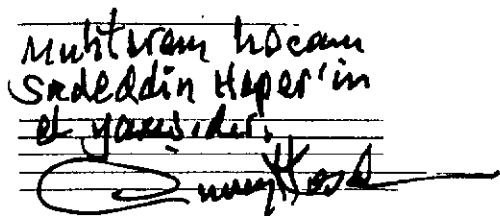 Muhterem hocam
Sadeddin Heper'in
el yazısıdır.